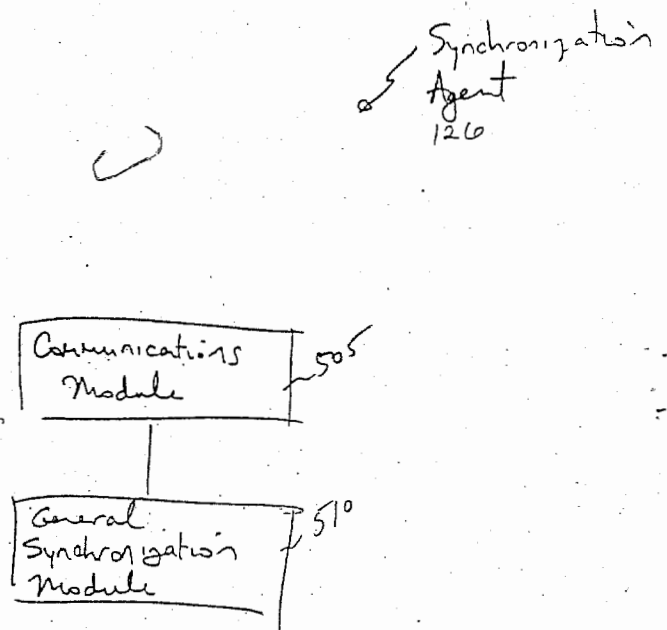 Synchronization
Agent
126
Communications
Module
505
General
Synchronization
Module
510